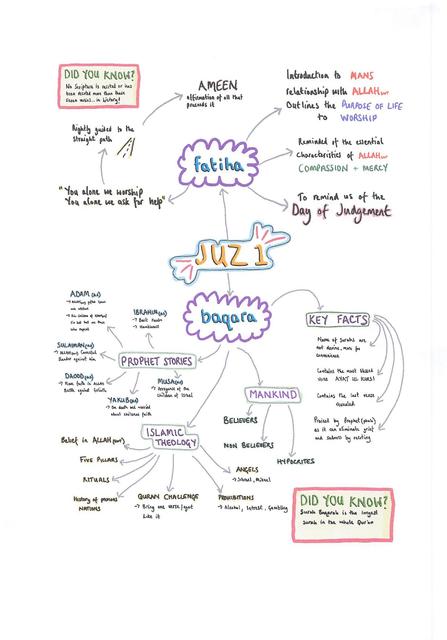 DID YOU KNOW?
No Scripture is recited or has
been recited more than these
seven verses... in history!
AMEEN
affirmation of all that
precedes it
Introduction to MANS
relationship with ALLAH
Outlines the PURPOSE OF LIFE
to WORSHIP
Rightly guided to the
straight path
fatiha
Reminded of the essential
characteristics of ALLAH
COMPASSION + MERCY
"You alone we worship
You alone we ask for help"
To remind us of the
Day of Judgement
JUZ 1
baqara
ADAM (as)
IBRAHIM (as)
KEY FACTS
SULAIMAN (as)
against him
PROPHET STORIES
Name of Surahs are
not desire, more for
convenience
DAOOD (as)
MUSA (as)
Arrogance of the
children of Israel
Contains the most blessed
verse AYAT UL KURSI
YAKUB (as)
On death bed worried
about children faith
MANKIND
Contains the last verse
revealed
ISLAMIC
THEOLOGY
BELIEVERS
Praised by Prophet (pbuh)
as it can eliminate grief
and sadness by reciting
Belief in ALLAH (swt)
NON BELIEVERS
FIVE PILLARS
HYPOCRITES
RITUALS
ANGELS
History of previous
NATIONS
QURAN CHALLENGE
→ Bring one verse/
like it
PROHIBITIONS
→ Alcohol, Interest, Gambling
DID YOU KNOW?
Surah Baqarah is the longest
surah in the whole Qur'an